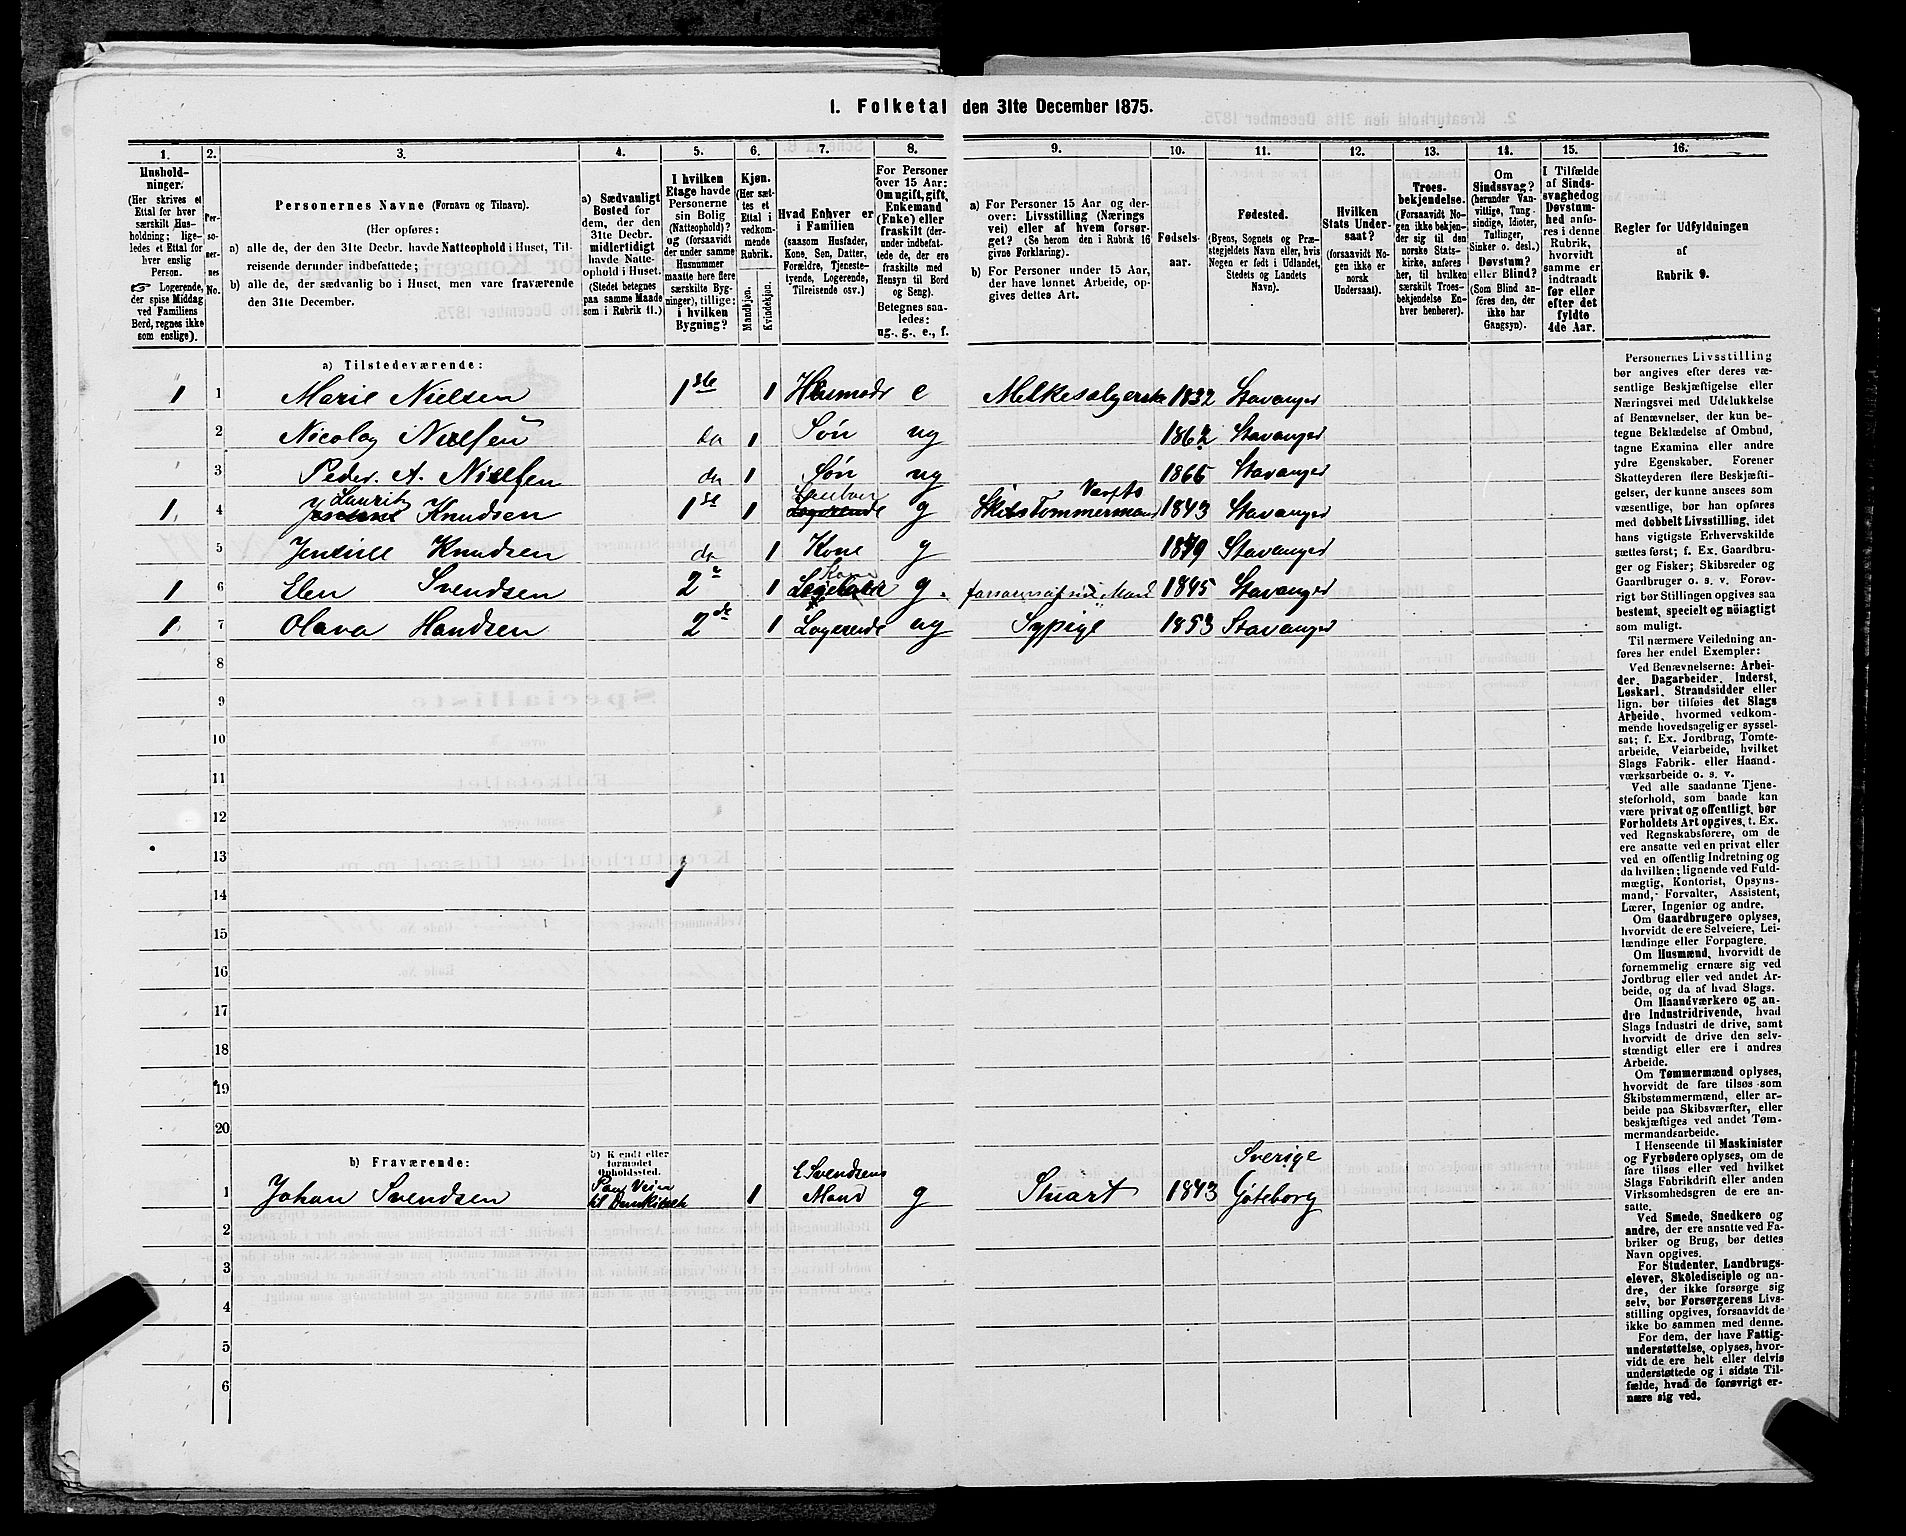 1. Folketal den 31te December 1875.
1. 2. 3. 4. 5. 6. 7. 8. 9. 10. 11. 12. 13. 14. 15. 16.
Husholdninger.
(Her skrives et
Ettal for hver
særskilt Husholdning;
ligeledes et Ettal for
hver enslig
Person.
☞ Logerende,
der spise Middag
ved Familiens
Bord, regnes ikke
som enslige).
Personernes No.
Personernes Navne (Fornavn og Tilnavn).
(Her opføres:
a) alle de, der den 31te Decbr. havde Natteophold i Huset, Tilreisende derunder indbefattede;
b) alle de, der sædvanlig bo i Huset, men vare fraværende
den 31te December.
a) Sædvanligt
Bosted for
dem, der den
31te Decbr.
midlertidigt
havde Natteophold
i Huset.
(Stedet betegnes
paa samme Maade
som i Rubrik 11.)
I hvilken
Etage havde
Personerne
sin Bolig
(Natteophold)?
og (forsaavidt
der under samme
Husnummer
maatte høre flere
særskilte Bygninger),
tillige:
i hvilken
Bygning?
Kjøn.
(Her sættes
et
Ettal i
vedkommende
Rubrik.
Mandkjøn.
Kvindekjøn.
Hvad Enhver er
i Familien
(saasom Husfader,
Kone, Søn, Datter,
Forældre, Tjenestetyende,
Logerende,
Tilreisende osv.)
For Personer
over 15 Aar:
Om ugift, gift,
Enkemand
(Enke) eller
fraskilt (derunder
indbefattede
de, der ere
fraskilte med
Hensyn til Bord
og Seng).
Betegnes saaledes:
ug., g., e., f.
a) For Personer 15 Aar og derover:
Livsstilling (Næringsvei)
eller af hvem forsørget?
(Se herom den i Rubrik 16
givne Forklaring).
b) For Personer under 15 Aar,
der have lønnet Arbeide, opgives
dettes Art.
Fødselsaar.
Fødested.
(Byens, Sognets og Præstegjeldets
Navn eller, hvis
Nogen er født i Udlandet,
Stedets og Landets
Navn).
Hvilken
Stats Undersaat?
(forsaavidt Nogen
ikke er
norsk
Undersaat).
Troesbekjendelse.
(Forsaavidt Nogen
ikke bekjender
sig til den
norske Statskirke,
anføres
her, til hvilken
særskilt Troesbekjendelse
Enhver
henhører).
Om
Sindssvag?
(herunder Vanvittige,
Tungsindige,
Idioter,
Tullinger,
Sinker o. desl.)
Døvstum?
eller Blind?
(Som Blind anføres
den, der
ikke har
Gangsyn).
I Tilfælde
af Sindssvaghed
og
Døvstumhed
anføres
i denne
Rubrik,
hvorvidt
samme er
indtraadt
før eller
efter det
fyldte
4de Aar.
Regler for Udfyldningen
af
Rubrik 9.
a) Tilstedeværende:
1 1 Marie Nielsen 1ste 1 Husmodr e Melkesælgerske 1832 Stavanger
2 Nicolay Nielsen do 1 Søn ug 1862 Stavanger
3 Peder. A. Nielsen do 1 Søn ug 1866 Stavanger
Laurits Værfts
1 4 Knudsen 1ste 1 Logerende g SkibsTømmermand 1843 Stavanger
5 Knudsen do 1 Kone g Stavanger
Kone
1 6 Elen Svendsen 2 1 g. Mand 1845 Stavanger
1 7 Olava Handsen 2de 1 Logerende ug Sypige 1853 Stavanger
8
9
10
11
12
13
14
15
16
17
18
19
20
b) Fraværende:
b) Kjendt eller
formodet
Opholdssted.
E Svendsens Sverige
Paa Veien
1 Johan Svendsen til 1 Mand g Stuart 1843 Gøteborg
2
3
4
5
6
Personernes Livsstilling
bør angives efter deres væsentlige
Beskjæftigelse eller
Næringsvei med Udelukkelse
af Benævnelser, der kun betegne
Beklædelse af Ombud,
tagne Examina eller andre
ydre Egenskaber. Forener
Skatteyderen flere Beskjæftigelser,
der kunne ansees som
væsentlige, bør han opføres
med dobbelt Livsstilling, idet
hans vigtigste Erhvervskilde
sættes først; f. Ex. Gaardbruger
og Fisker; Skibsreder og
Gaardbruger o. s. v. Forøvrigt
bør Stillingen opgives saa
bestemt, specielt og nøiagtigt
som muligt.
Til nærmere Veiledning anføres
her endel Exempler:
Ved Benævnelserne: Arbeider,
Dagarbeider, Inderst,
Løskarl, Strandsidder eller
lign. bør tilføies det Slags
Arbeide, hvormed vedkommende
hovedsagelig er sysselsat;
f. Ex. Jordbrug, Tomtearbeide,
Veiarbeide, hvilket
Slags Fabrik- eller Haandværksarbeide
o. s. v.
Ved alle saadanne Tjenesteforhold,
som baade kan
være privat og offentligt, bør
Forholdets Art opgives, t. Ex.
ved Regnskabsførere, om de
ere ansatte ved en privat eller
ved en offentlig Indretning og
da hvilken; lignende ved Fuldmægtig,
Kontorist, Opsynsmand,
Forvalter, Assistent,
Lærer, Ingeniør og andre.
Om Gaardbrugere oplyses,
hvorvidt de ere Selveiere, Leilændinge
eller Forpagtere.
Om Husmænd, hvorvidt de
fornemmelig ernære sig ved
Jordbrug eller ved andet Arbeide,
og da af hvad Slags.
Om Haandværkere og andre
Industridrivende, hvad
Slags Industri de drive, samt
hvorvidt de drive den selvstændigt
eller ere i andres
Arbeide.
Om Tømmermænd oplyses,
hvorvidt de fare tilsøs som
Skibstømmermænd, eller arbeide
paa Skibsværfter, eller
beskjæftiges ved andet Tømmermandsarbeide.
I Henseende til Maskinister
og Fyrbødere oplyses, om de
fare tilsøs eller ved hvilket
Slags Fabrikdrift eller anden
Virksomhedsgren de ere ansatte.
Ved Smede, Snedkere og
andre, der ere ansatte ved Fabriker
og Brug, bør dettes
Navn opgives.
For Studenter, Landbrugselever,
Skoledisciple og andre,
der ikke forsørge sig
selv, bør Forsørgerens Livsstilling
opgives, forsaavidt de
ikke bo sammen med denne.
For dem, der have Fattigunderstøttelse,
oplyses, hvorvidt
de ere helt eller delvis
understøttede og i sidste Tilfælde,
hvad de forøvrigt ernære
sig ved.